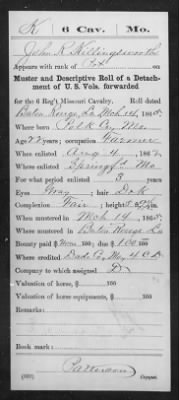 K 6 Cav. Mo.
John R Killingsworth
Appears with rank of Pvt on
Muster and Descriptive Roll of a Detach-
ment of U. S. Vols. forwarded
for the 6 Reg't Missouri Cavalry. Roll dated
Baton Rouge La Mch 14, 1865.
Where born Polk Co, Mo.
Age 22 years; occupation Farmer
When enlisted Aug 4, 1862
Where enlisted Springf'd Mo
For what period enlisted 3 years
Eyes Gray; hair Dark
Complexion Fair; height 5 ft. in.
When mustered in Mch 14, 1865.
Where mustered in Baton Rouge La
Bounty paid $ None 100; due $ 100 100
Where credited Dade Co, Mo, 4 C D
Company to which assigned D
Valuation of horse, $ 100
Valuation of horse equipments, $ 100
Remarks:
Book mark:
Patterson
Copyist.